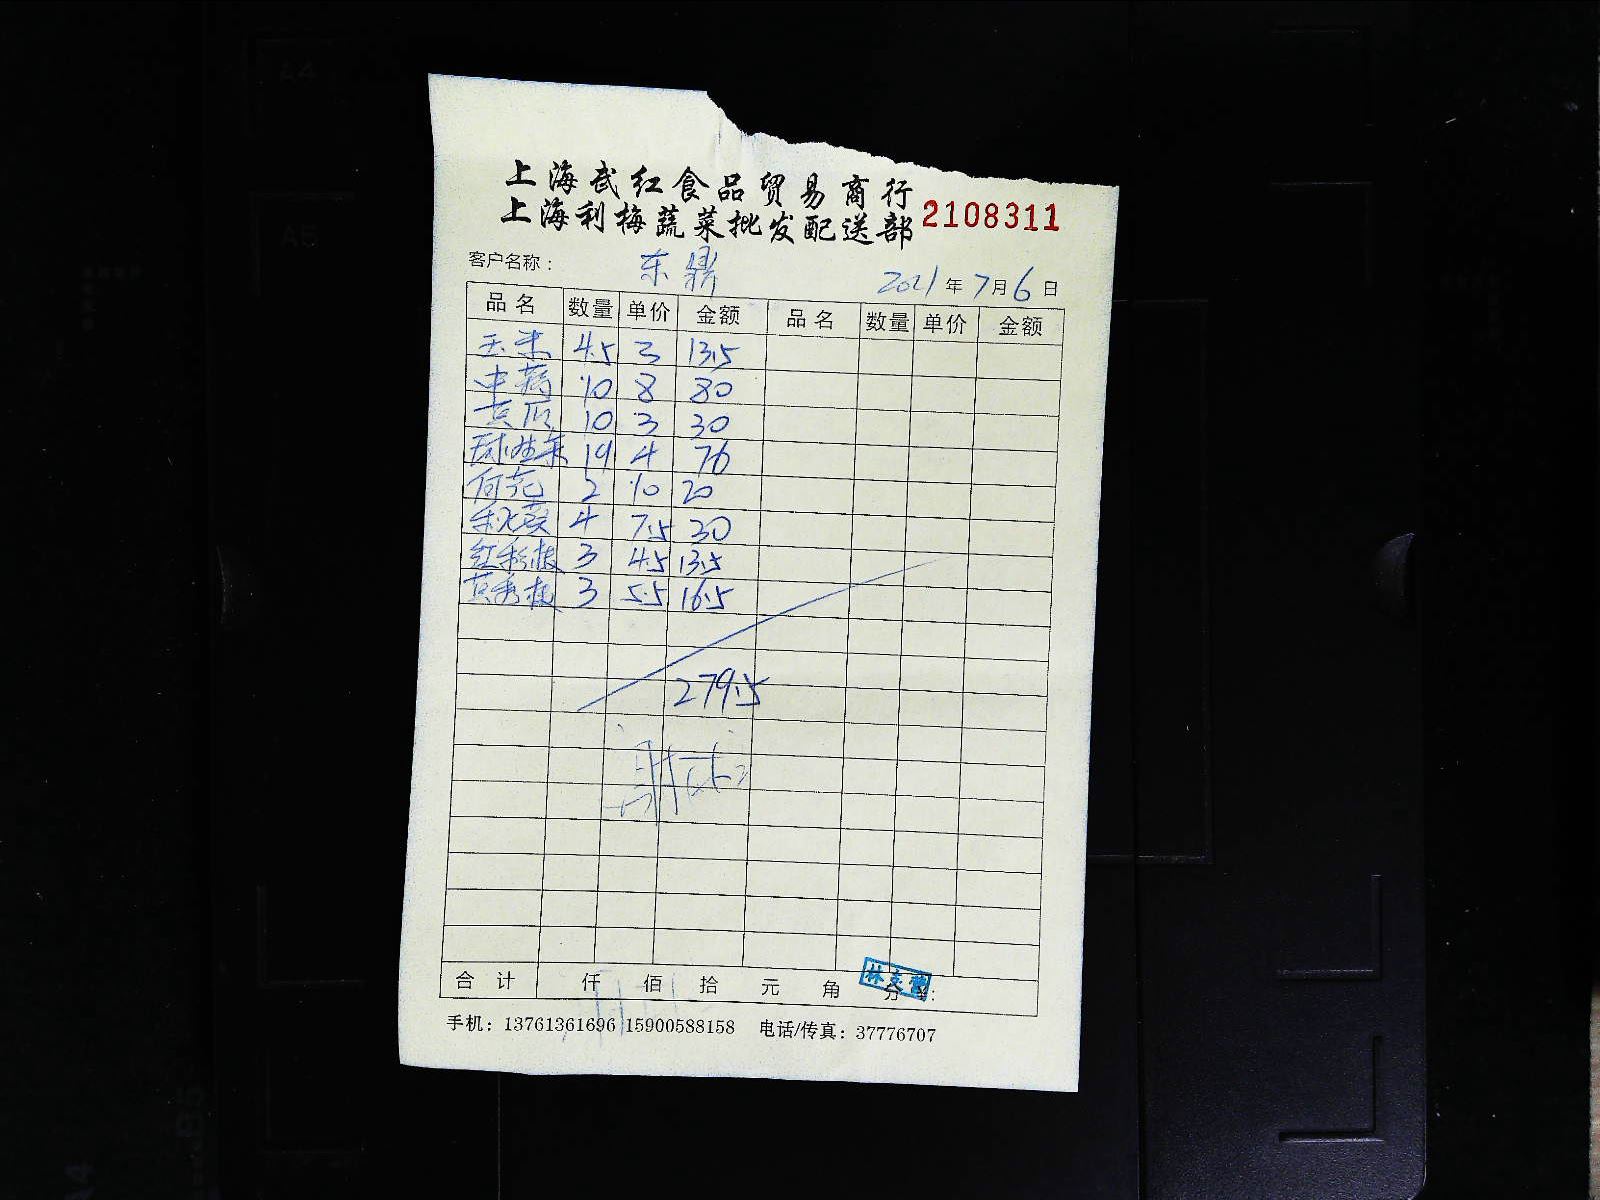 上海武红食品贸易商行
上海利梅蔬菜批发配送部 2108311
客户名称： 东鼎 2021年7月6日
品名 数量 单价 金额 品名 数量 单价 金额
玉米 4.5 3 13.5
10 8 80
黄瓜 10 3 30
球生菜 19 4 76
2 10 20
4 7.5 30
红彩椒 3 4.5 13.5
黄彩椒 3 5.5 16.5
279.5
合计 仟 佰 拾 元 角 分 ¥：
手机：13761361696 15900588158 电话/传真：37776707